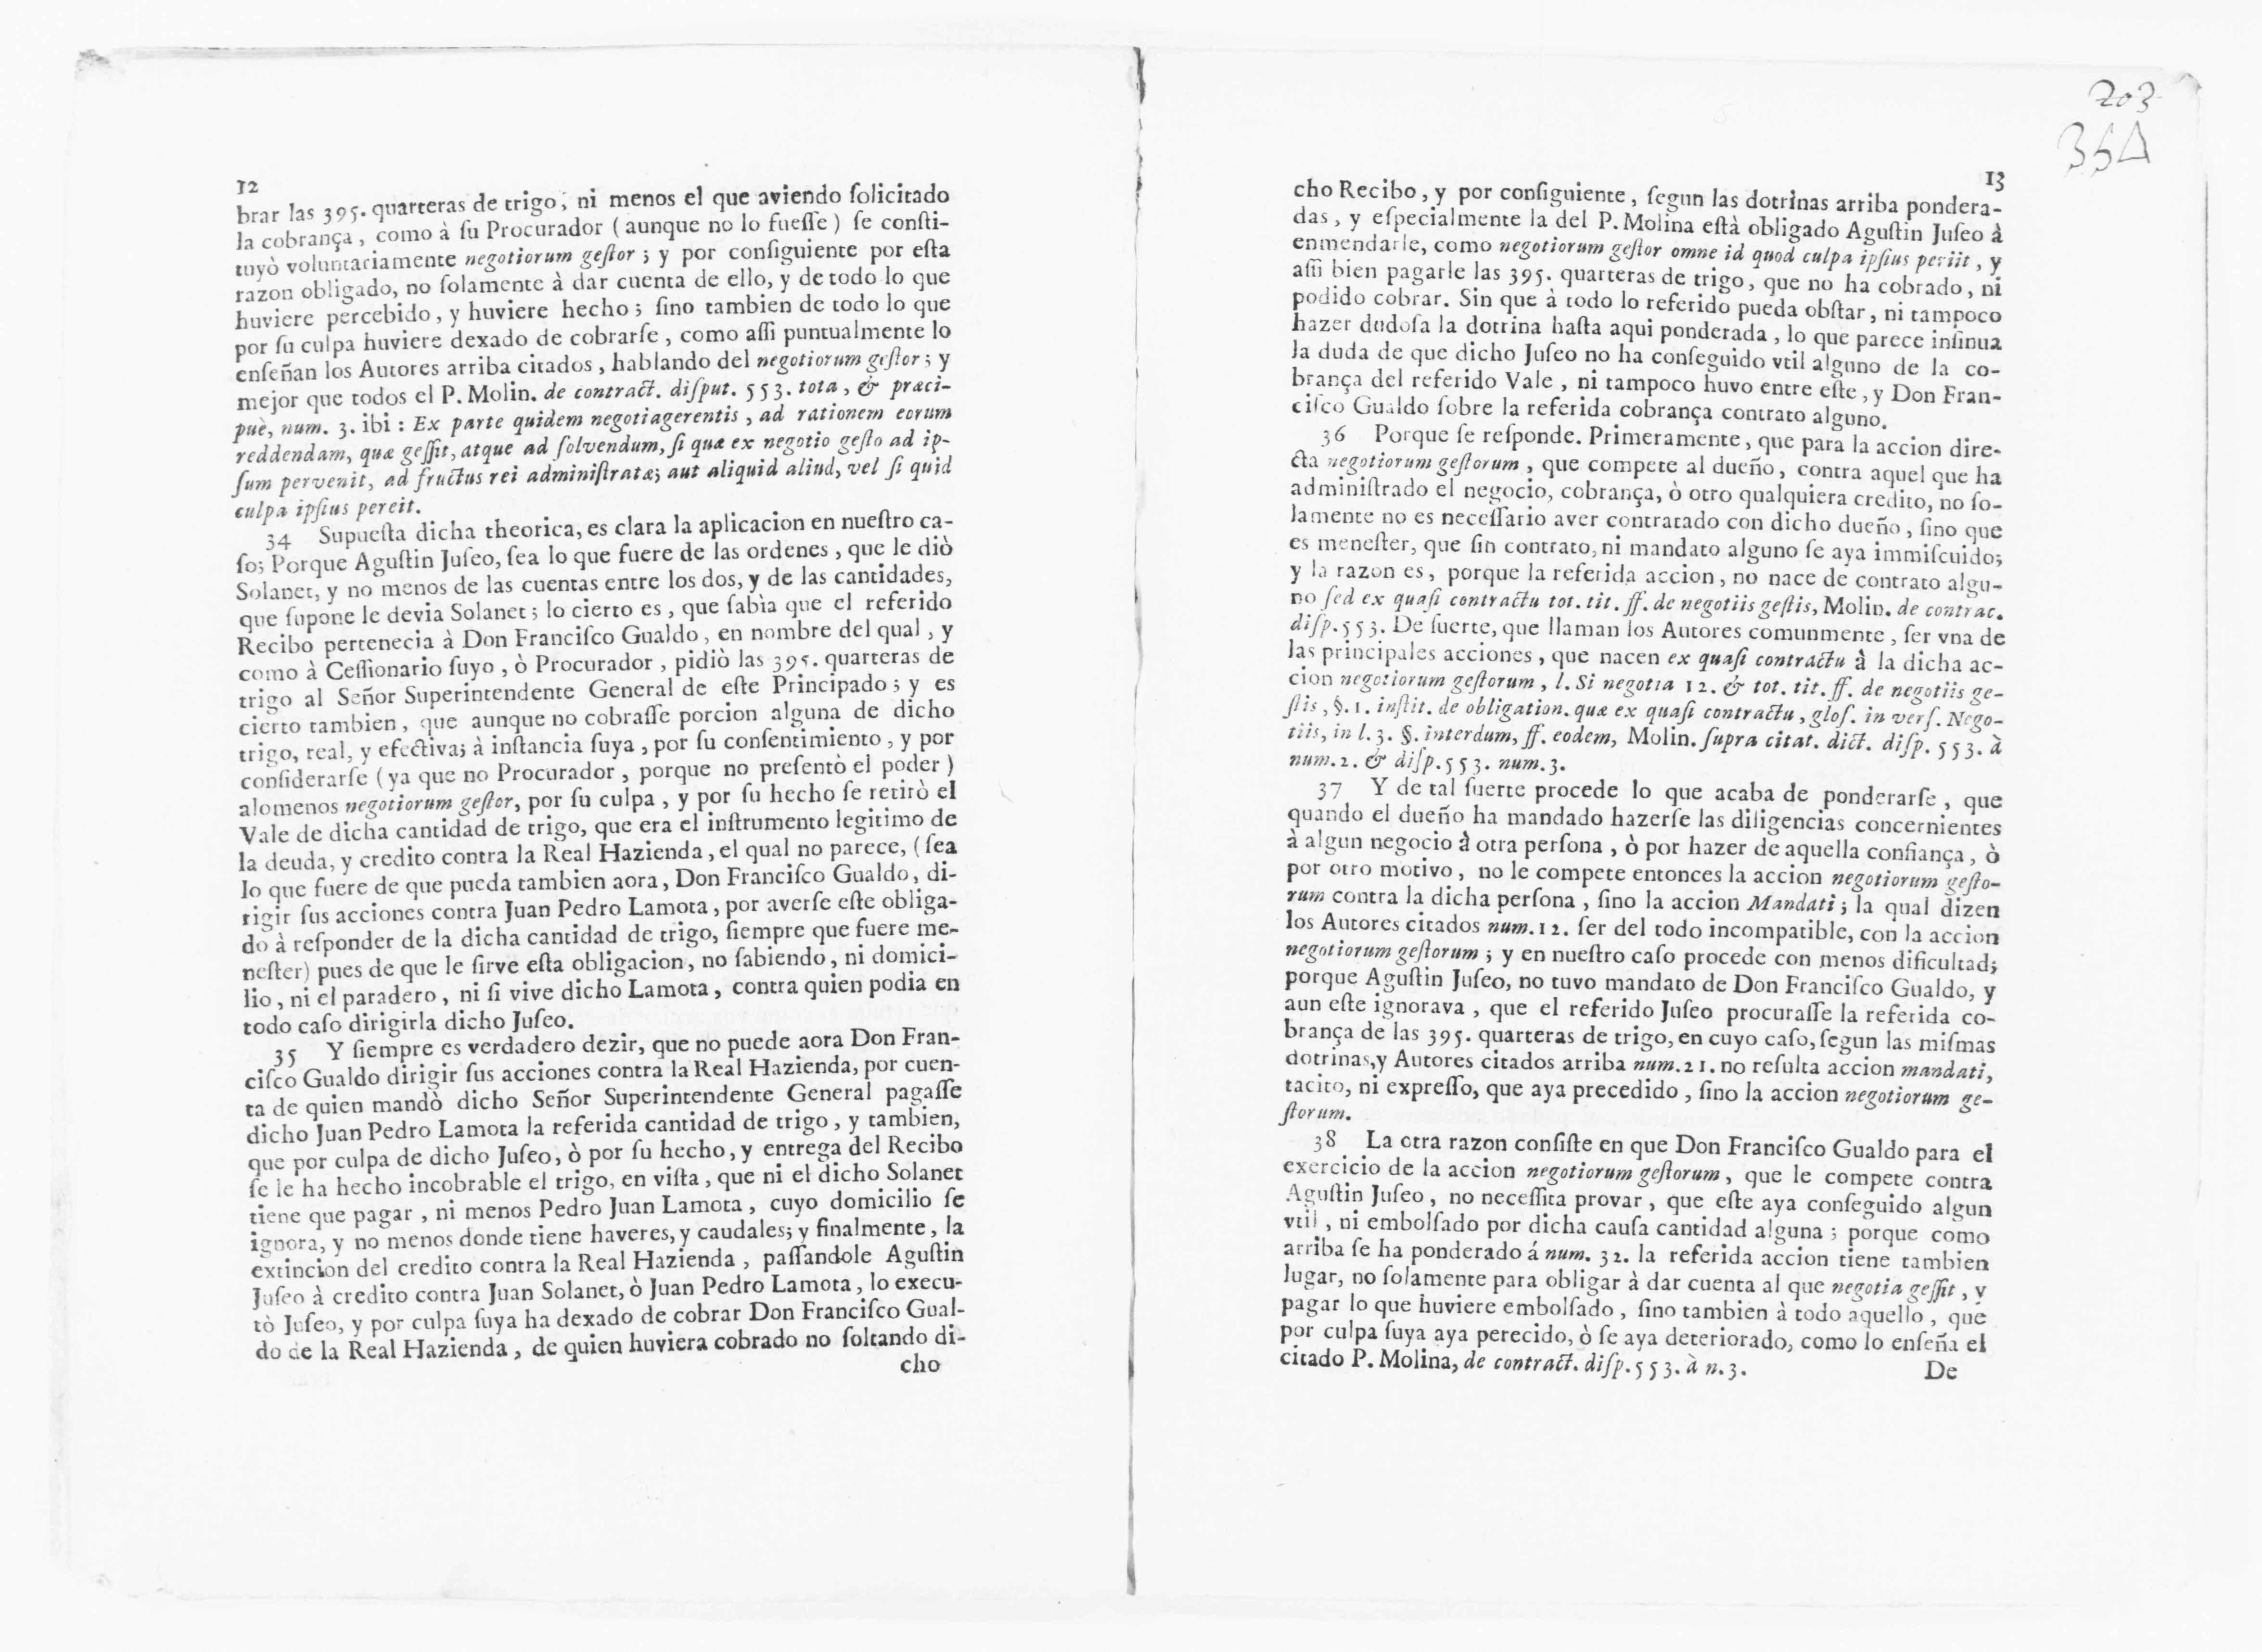 12
brar las 395. quarteras de trigo, ni menos el que aviendo ſolicitado
la cobrança, como à ſu Procurador (aunque no lo fueſſe) ſe conſti-
tuyò voluntariamente negotiorum geſtor; y por conſiguiente por eſta
razon obligado, no ſolamente à dar cuenta de ello, y de todo lo que
huviere percebido, y huviere hecho; ſino tambien de todo lo que
por ſu culpa huviere dexado de cobrarſe, como aſſi puntualmente lo
enſeñan los Autores arriba citados, hablando del negotiorum geſtor; y
mejor que todos el P. Molin. de contract. diſput. 553. tota, & præci-
puè, num. 3. ibi: Ex parte quidem negotiagerentis, ad rationem eorum
reddendam, quæ geſſit, atque ad ſolvendum, ſi quæ ex negotio geſto ad ip-
ſum pervenit, ad fructus rei adminiſtratæ; aut aliquid aliud, vel ſi quid
culpa ipſius pereit.
34 Supueſta dicha theorica, es clara la aplicacion en nueſtro ca-
ſo; Porque Aguſtin Juſeo, ſea lo que fuere de las ordenes, que le diò
Solanet, y no menos de las cuentas entre los dos, y de las cantidades,
que ſupone le devia Solanet; lo cierto es, que ſabìa que el referido
Recibo pertenecia à Don Franciſco Gualdo, en nombre del qual, y
como à Ceſſionario ſuyo, ò Procurador, pidiò las 395. quarteras de
trigo al Señor Superintendente General de eſte Principado; y es
cierto tambien, que aunque no cobraſſe porcion alguna de dicho
trigo, real, y efectiva; à inſtancia ſuya, por ſu conſentimiento, y por
conſiderarſe (ya que no Procurador, porque no preſentò el poder)
alomenos negotiorum geſtor, por ſu culpa, y por ſu hecho ſe retirò el
Vale de dicha cantidad de trigo, que era el inſtrumento legitimo de
la deuda, y credito contra la Real Hazienda, el qual no parece, (ſea
lo que fuere de que pueda tambien aora, Don Franciſco Gualdo, di-
rigir ſus acciones contra Juan Pedro Lamota, por averſe eſte obliga-
do à reſponder de la dicha cantidad de trigo, ſiempre que fuere me-
neſter) pues de que le ſirve eſta obligacion, no ſabiendo, ni domici-
lio, ni el paradero, ni ſi vive dicho Lamota, contra quien podia en
todo caſo dirigirla dicho Juſeo.
35 Y ſiempre es verdadero dezir, que no puede aora Don Fran-
ciſco Gualdo dirigir ſus acciones contra la Real Hazienda, por cuen-
ta de quien mandò dicho Señor Superintendente General pagaſſe
dicho Juan Pedro Lamota la referida cantidad de trigo, y tambien,
que por culpa de dicho Juſeo, ò por ſu hecho, y entrega del Recibo
ſe le ha hecho incobrable el trigo, en viſta, que ni el dicho Solanet
tiene que pagar, ni menos Pedro Juan Lamota, cuyo domicilio ſe
ignora, y no menos donde tiene haveres, y caudales; y finalmente, la
extincion del credito contra la Real Hazienda, paſſandole Aguſtin
Juſeo à credito contra Juan Solanet, ò Juan Pedro Lamota, lo execu-
tò Juſeo, y por culpa ſuya ha dexado de cobrar Don Franciſco Gual-
do de la Real Hazienda, de quien huviera cobrado no ſoltando di-
cho
203
354
13
cho Recibo, y por conſiguiente, ſegun las dotrinas arriba pondera-
das, y eſpecialmente la del P. Molina eſtà obligado Aguſtin Juſeo à
enmendarle, como negotiorum geſtor omne id quod culpa ipſius periit, y
aſſi bien pagarle las 395. quarteras de trigo, que no ha cobrado, ni
podido cobrar. Sin que à todo lo referido pueda obſtar, ni tampoco
hazer dudoſa la dotrina haſta aqui ponderada, lo que parece inſinua
la duda de que dicho Juſeo no ha conſeguido vtil alguno de la co-
brança del referido Vale, ni tampoco huvo entre eſte, y Don Fran-
ciſco Gualdo ſobre la referida cobrança contrato alguno.
36 Porque ſe reſponde. Primeramente, que para la accion dire-
cta negotiorum geſtorum, que compete al dueño, contra aquel que ha
adminiſtrado el negocio, cobrança, ò otro qualquiera credito, no ſo-
lamente no es neceſſario aver contratado con dicho dueño, ſino que
es meneſter, que ſin contrato, ni mandato alguno ſe aya immiſcuido;
y la razon es, porque la referida accion, no nace de contrato algu-
no ſed ex quaſi contractu tot. tit. ff. de negotiis geſtis, Molin. de contrac.
diſp. 553. De ſuerte, que llaman los Autores comunmente, ſer vna de
las principales acciones, que nacen ex quaſi contractu à la dicha ac-
cion negotiorum geſtorum, l. Si negotia 12. & tot. tit. ff. de negotiis ge-
ſtis, §. 1. inſtit. de obligation. quæ ex quaſi contractu, gloſ. in verſ. Nego-
tiis, in l. 3. §. interdum, ff. eodem, Molin. ſupra citat. dict. diſp. 553. à
num. 2. & diſp. 553. num. 3.
37 Y de tal ſuerte procede lo que acaba de ponderarſe, que
quando el dueño ha mandado hazerſe las diligencias concernientes
à algun negocio à otra perſona, ò por hazer de aquella confiança, ò
por otro motivo, no le compete entonces la accion negotiorum geſto-
rum contra la dicha perſona, ſino la accion Mandati; la qual dizen
los Autores citados num. 12. ſer del todo incompatible, con la accion
negotiorum geſtorum; y en nueſtro caſo procede con menos dificultad;
porque Aguſtin Juſeo, no tuvo mandato de Don Franciſco Gualdo, y
aun eſte ignorava, que el referido Juſeo procuraſſe la referida co-
brança de las 395. quarteras de trigo, en cuyo caſo, ſegun las miſmas
dotrinas, y Autores citados arriba num. 21. no reſulta accion mandati,
tacito, ni expreſſo, que aya precedido, ſino la accion negotiorum ge-
ſtorum.
38 La otra razon conſiſte en que Don Franciſco Gualdo para el
exercicio de la accion negotiorum geſtorum, que le compete contra
Aguſtin Juſeo, no neceſſita provar, que eſte aya conſeguido algun
vtil, ni embolſado por dicha cauſa cantidad alguna; porque como
arriba ſe ha ponderado á num. 32. la referida accion tiene tambien
lugar, no ſolamente para obligar à dar cuenta al que negotia geſſit, y
pagar lo que huviere embolſado, ſino tambien à todo aquello, que
por culpa ſuya aya perecido, ò ſe aya deteriorado, como lo enſeña el
citado P. Molina, de contract. diſp. 553. à n. 3.
De